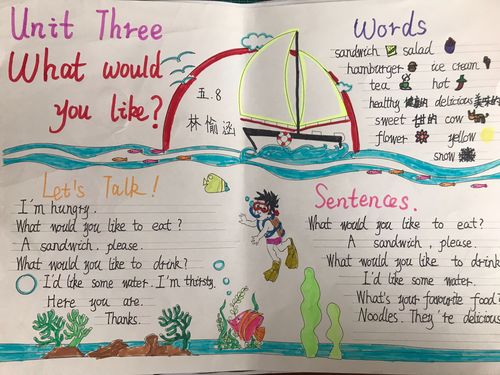 Unit Three
What would
you like?
五.8
林愉涵
Words
sandwich salad
hamburger ice cream
tea hot
healthy 健康的 delicious 美味的
sweet 甜的 cow
flower yellow
snow
Let's Talk!
I'm hungry.
What would you like to eat?
A sandwich, please.
What would you like to drink?
I'd like some water. I'm thirsty.
Here you are.
Thanks.
Sentences.
What would you like to eat?
A sandwich, please.
What would you like to drink
I'd like some water.
What's your favourite food?
Noodles. They're delicious